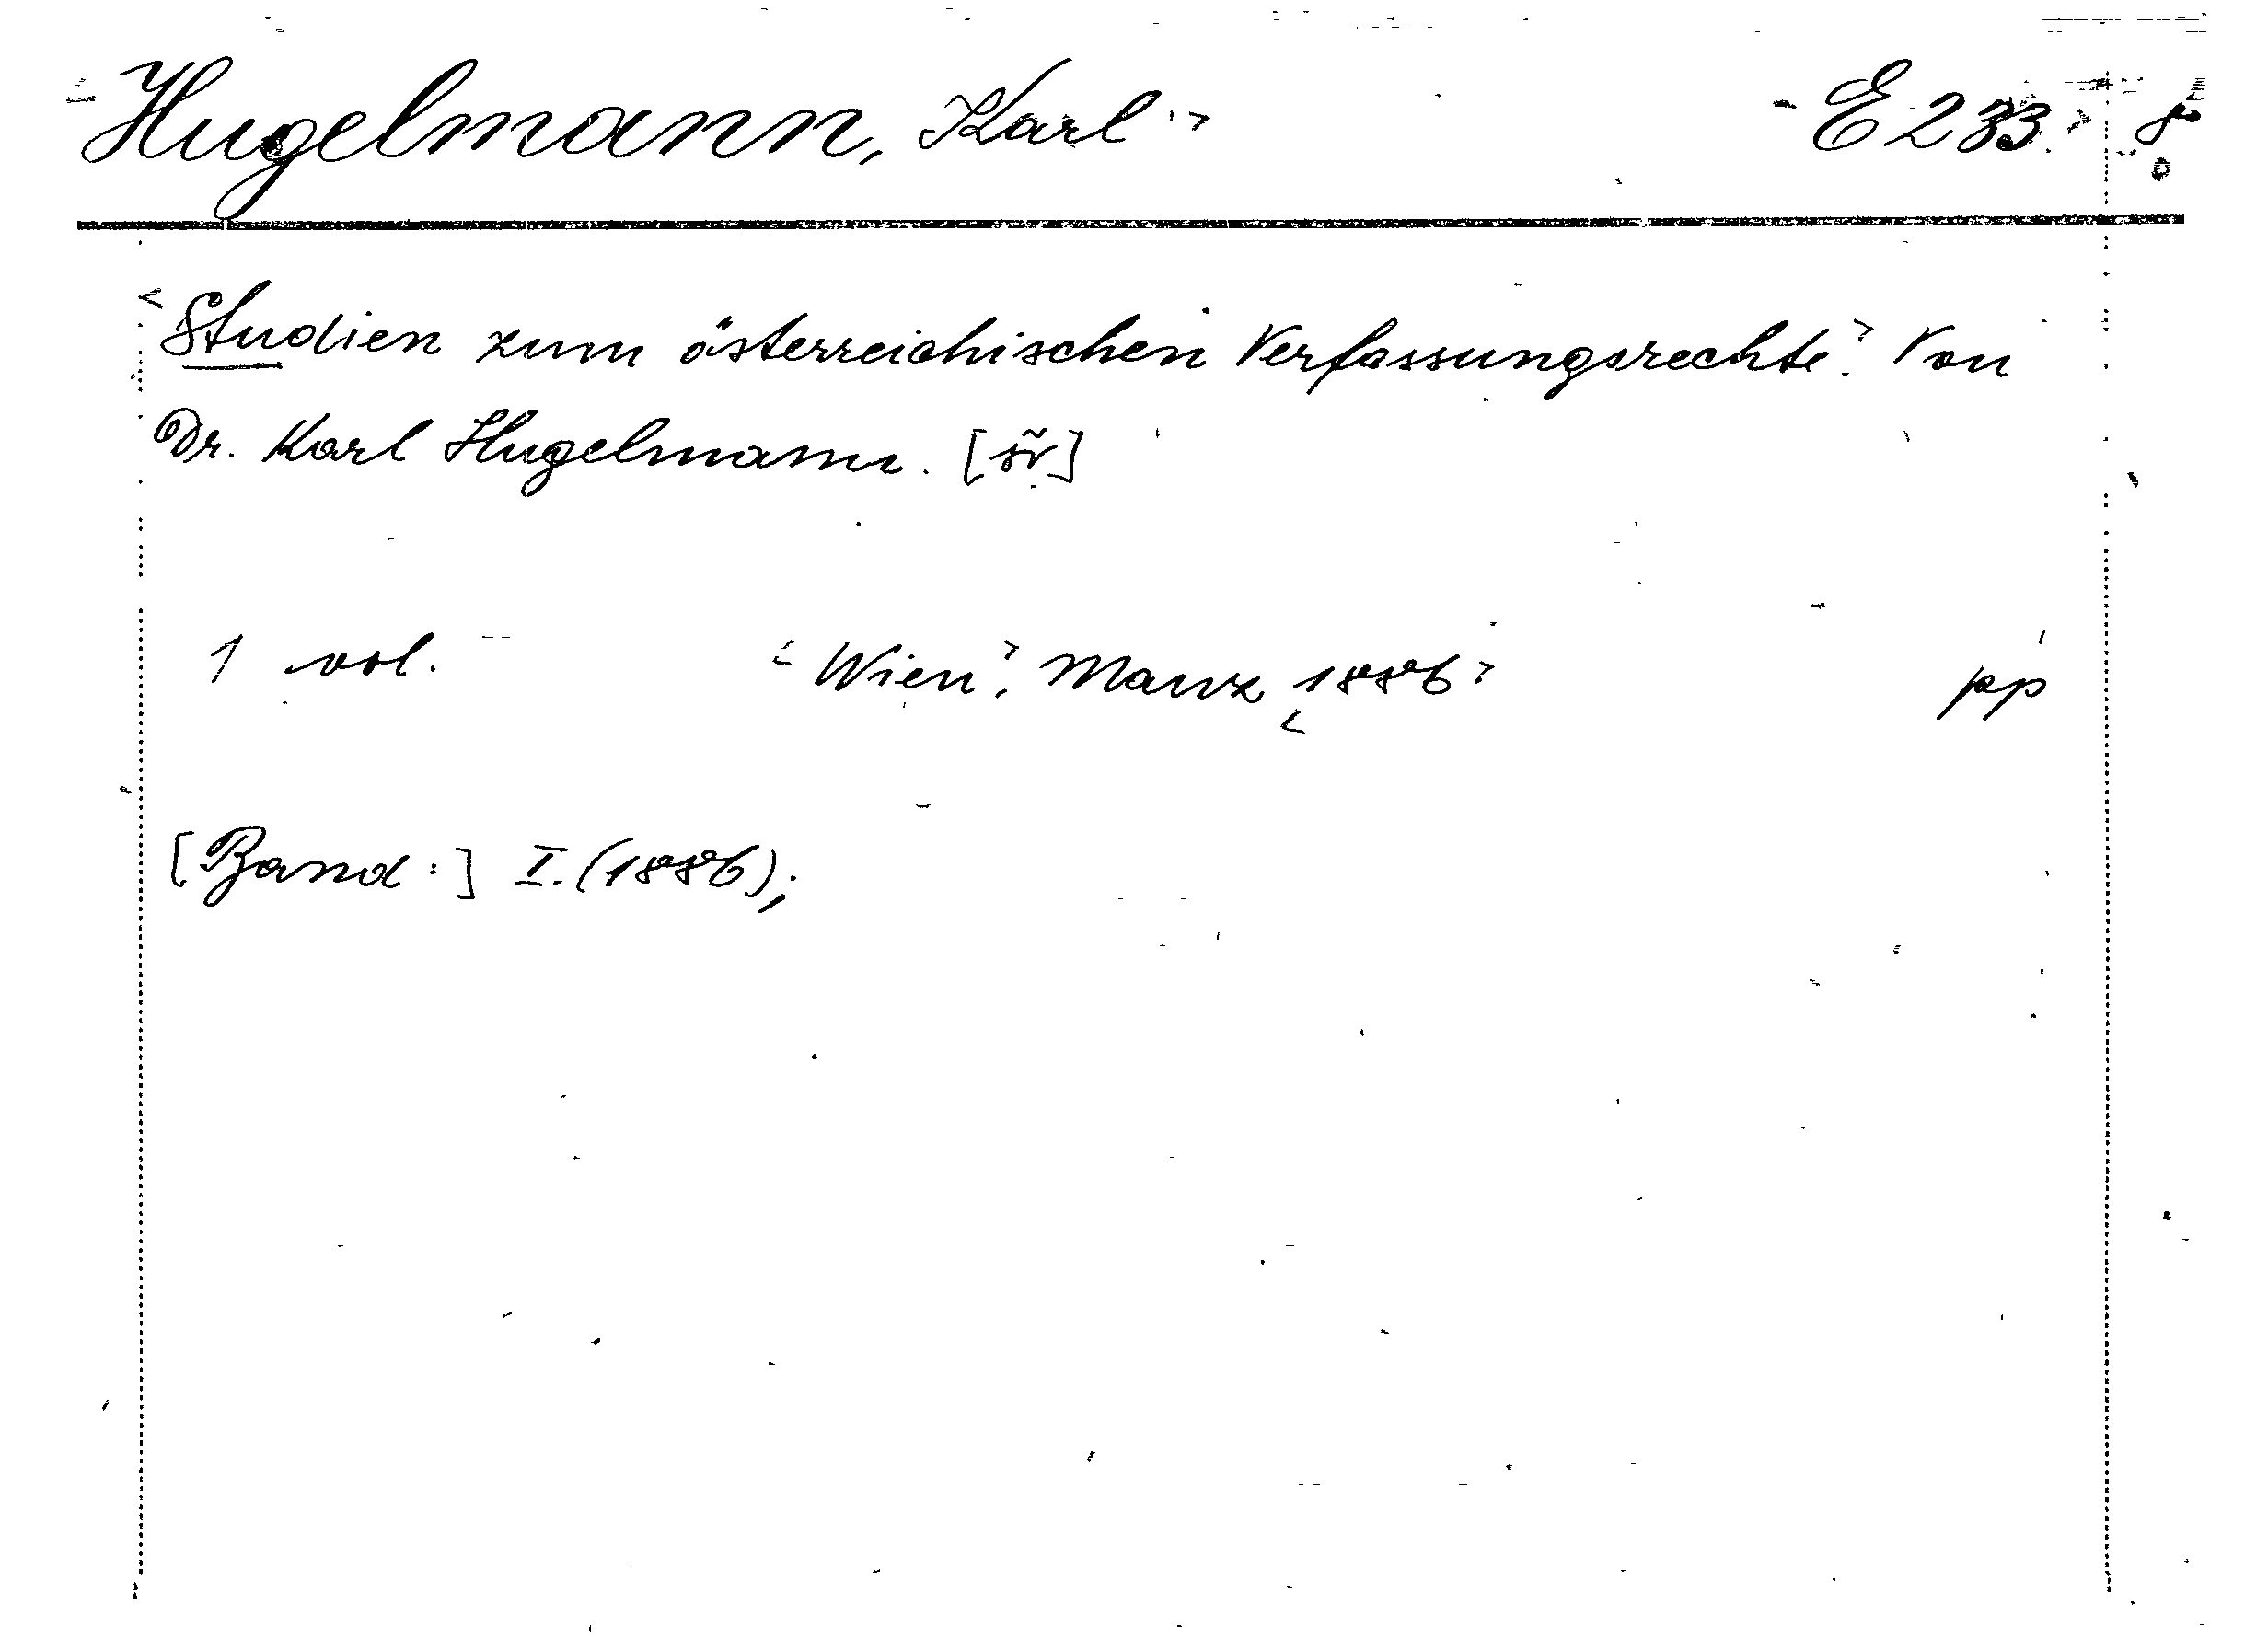 Hugelmann, Karl E 233.
<Studien zum österreichischen Verfassungsrechte>. Von
Dr. Karl Hugelmann.
1 vol. <Wien>. Manz <1886> pp
[Band:] I. (1886);